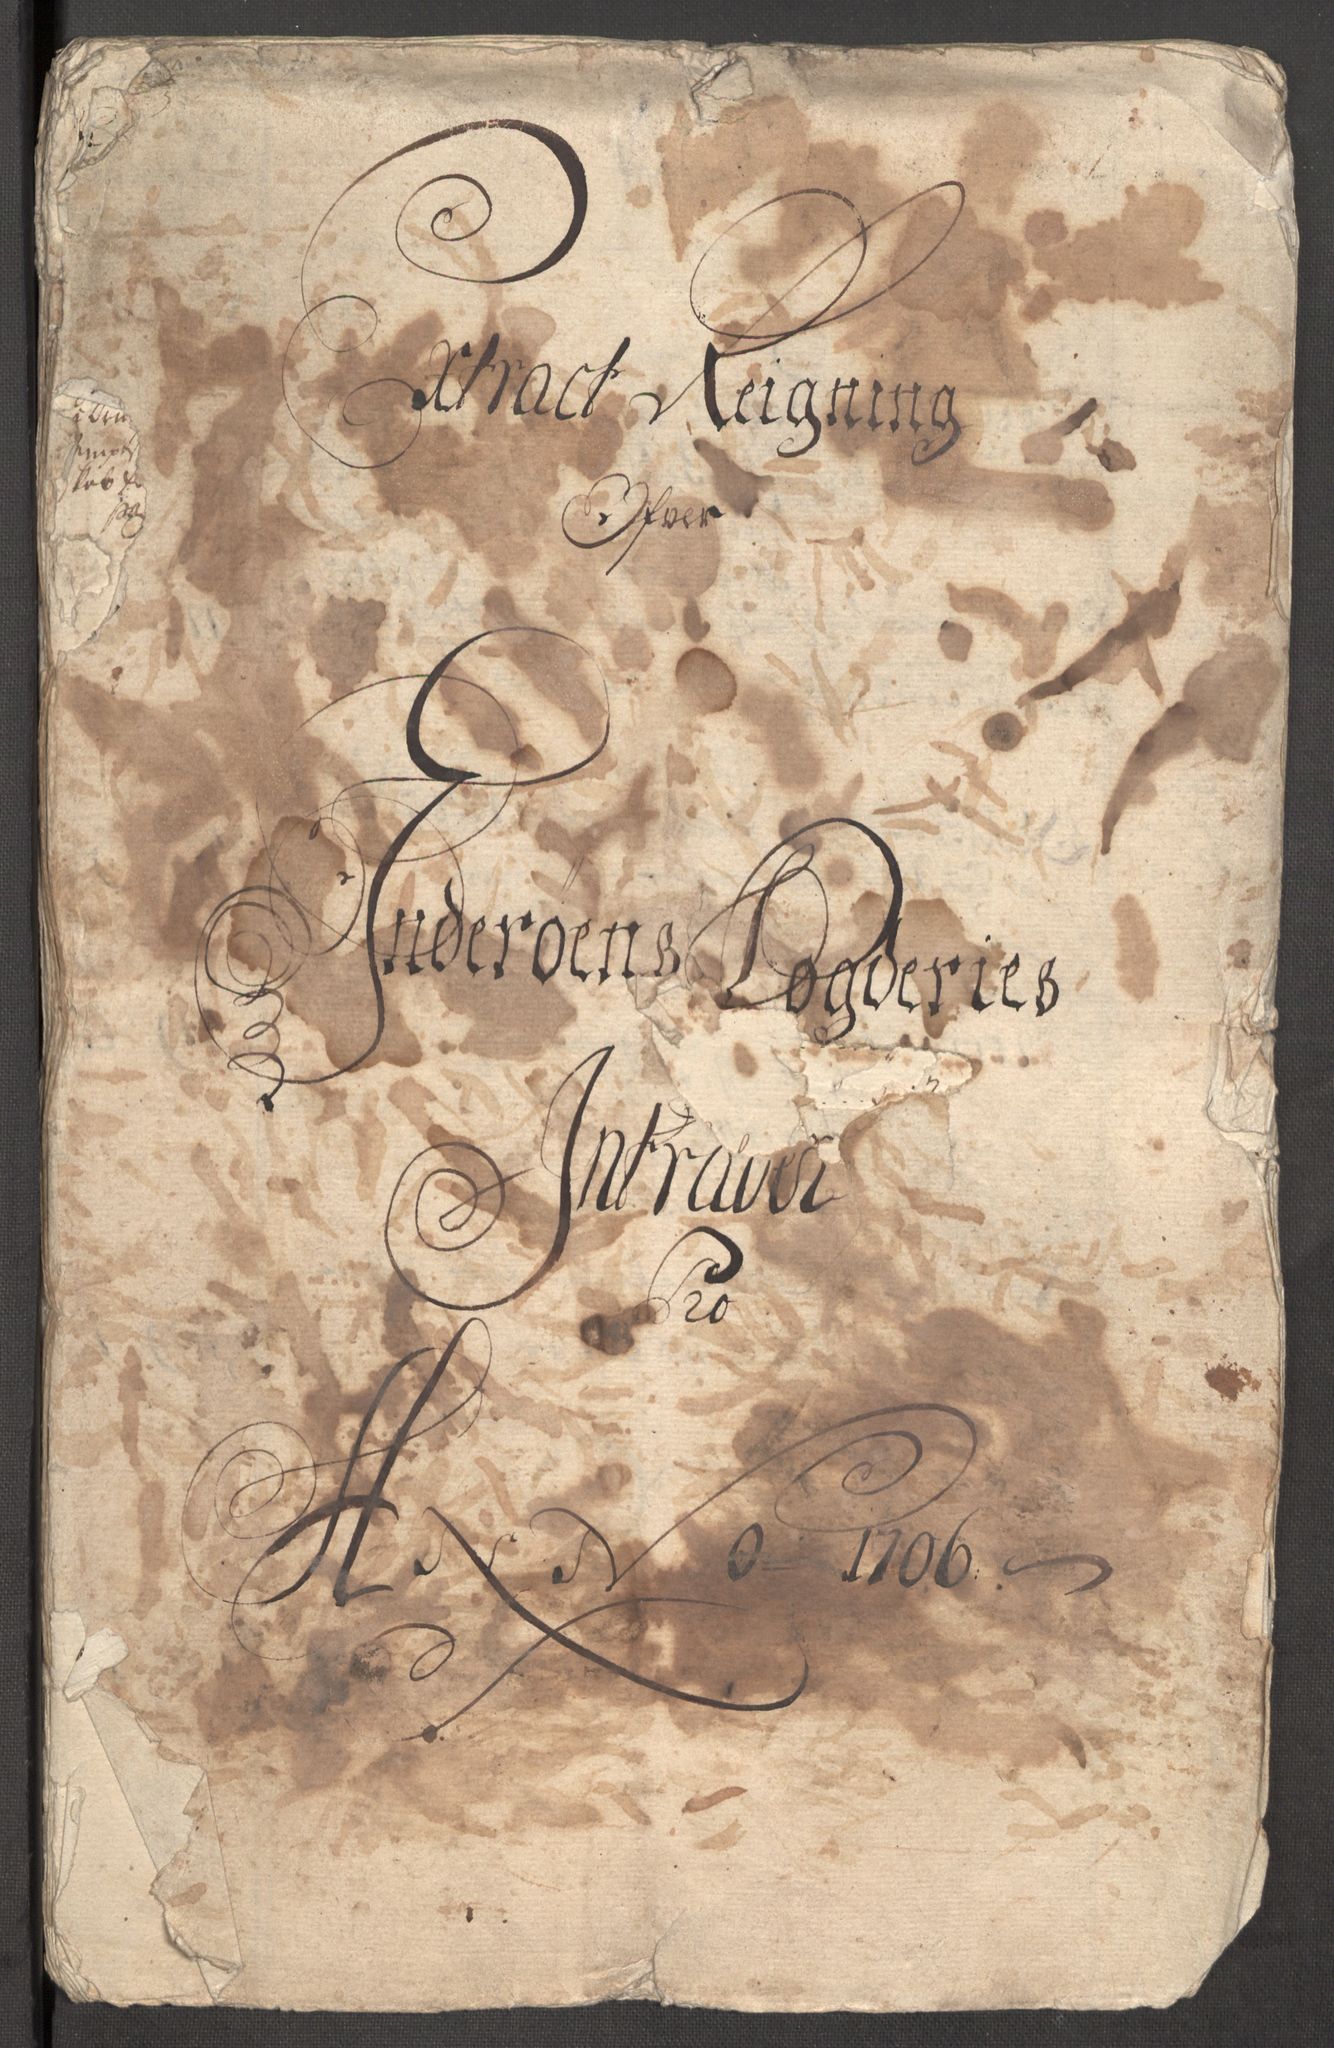 Extract Reigning
Ofver
Inderöens Fogderies
Intrader
Pro
ANNO 1706